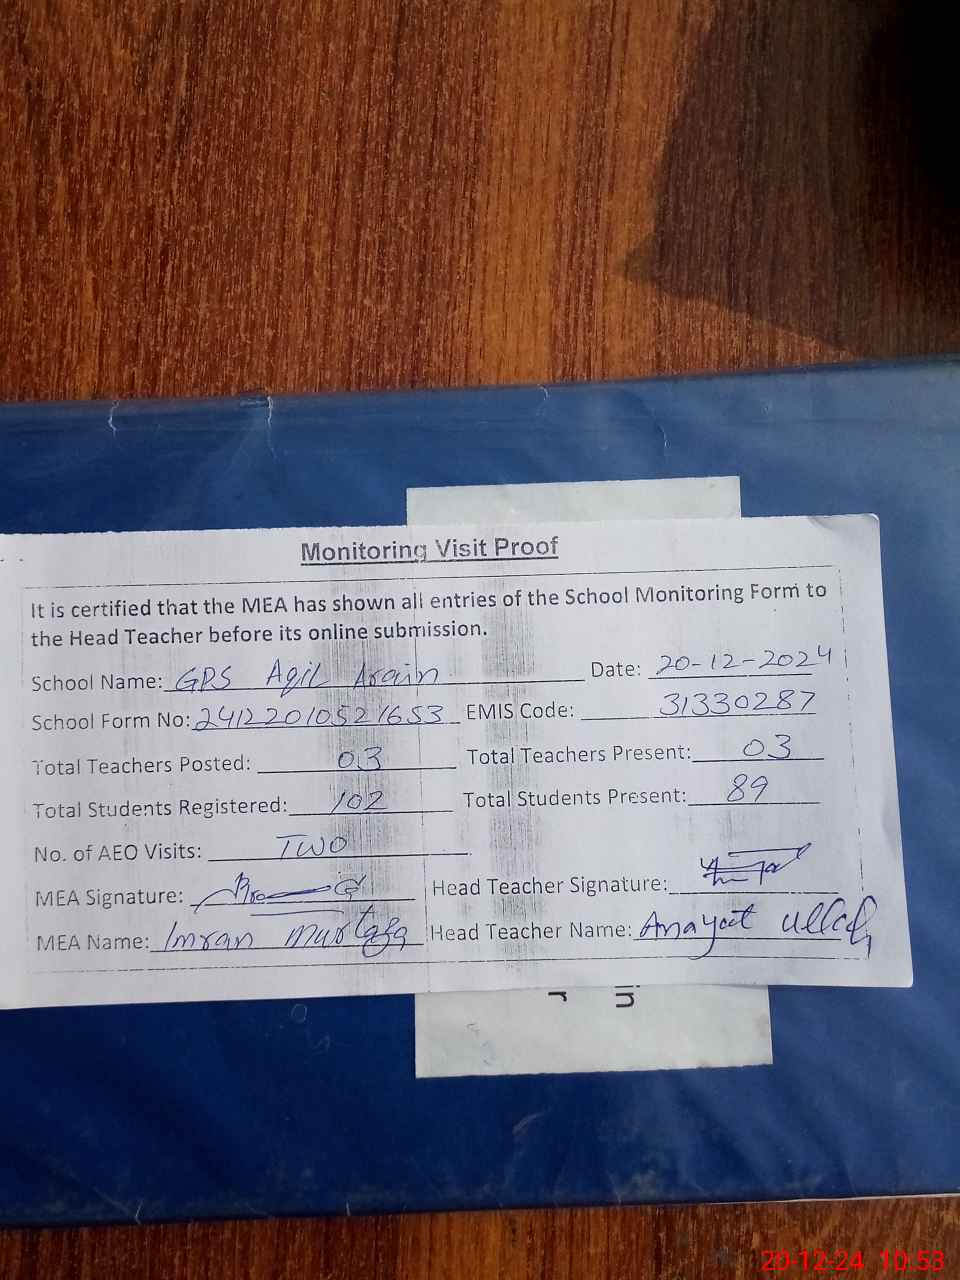 Monitoring Visit Proof
It is certified that the MEA has shown all entries of the School Monitoring Form to
the Head Teacher before its online submission.
School Name: GPS Aqil Arain Date: 20-12-2024
School Form No: 24122010521653 EMIS Code: 31330287
Total Teachers Posted: 03 Total Teachers Present: 03
Total Students Registered: 102 Total Students Present: 89
No. of AEO Visits: TWO
MEA Signature: Head Teacher Signature:
MEA Name: Imran Murtaza Head Teacher Name: Anayat ullah
in
r
20-12-24 10:53